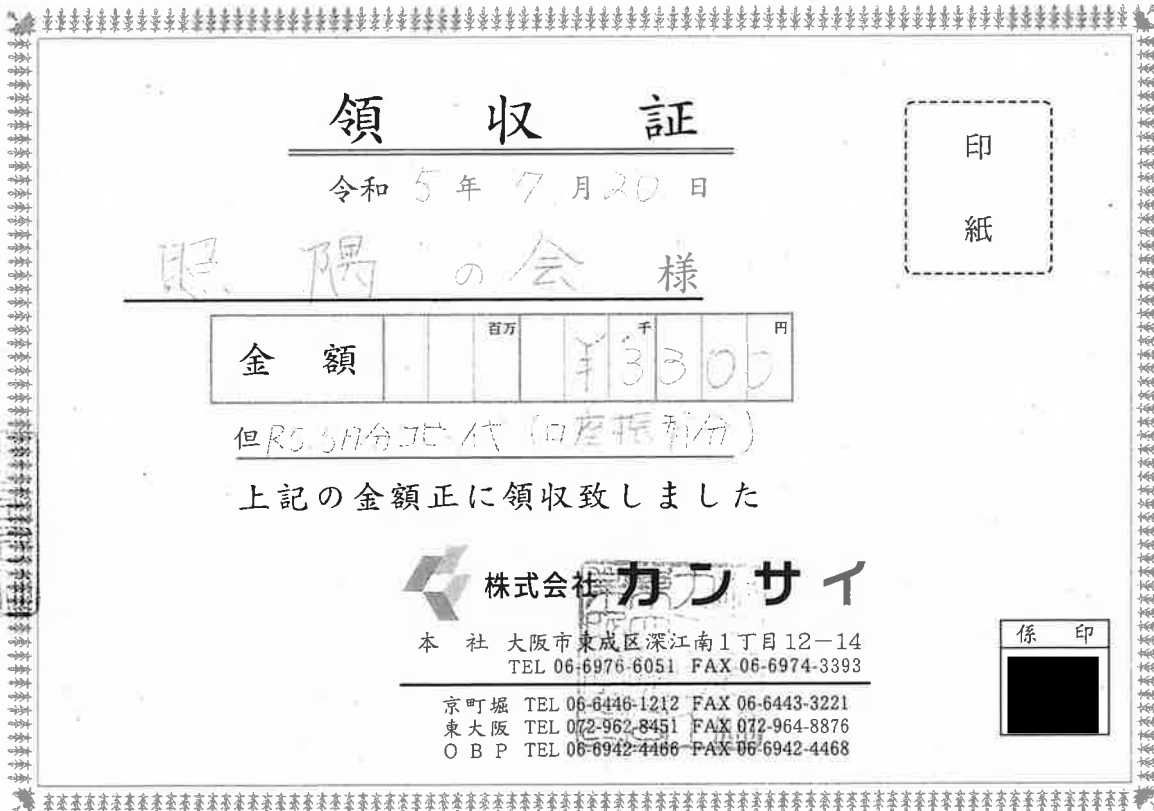 領収証
印紙
令和 5年 7月20日
照隅の会 様
金額 百万 千 円
¥3300
但 R5.5月分コピー代(口座振替分)
上記の金額正に領収致しました
株式会社カンサイ
本社 大阪市東成区深江南1丁目12-14
TEL 06-6976-6051 FAX 06-6974-3393
京町堀 TEL 06-6446-1212 FAX 06-6443-3221
東大阪 TEL 072-962-8451 FAX 072-964-8876
OBP TEL 06-6942-4466 FAX 06-6942-4468
係印